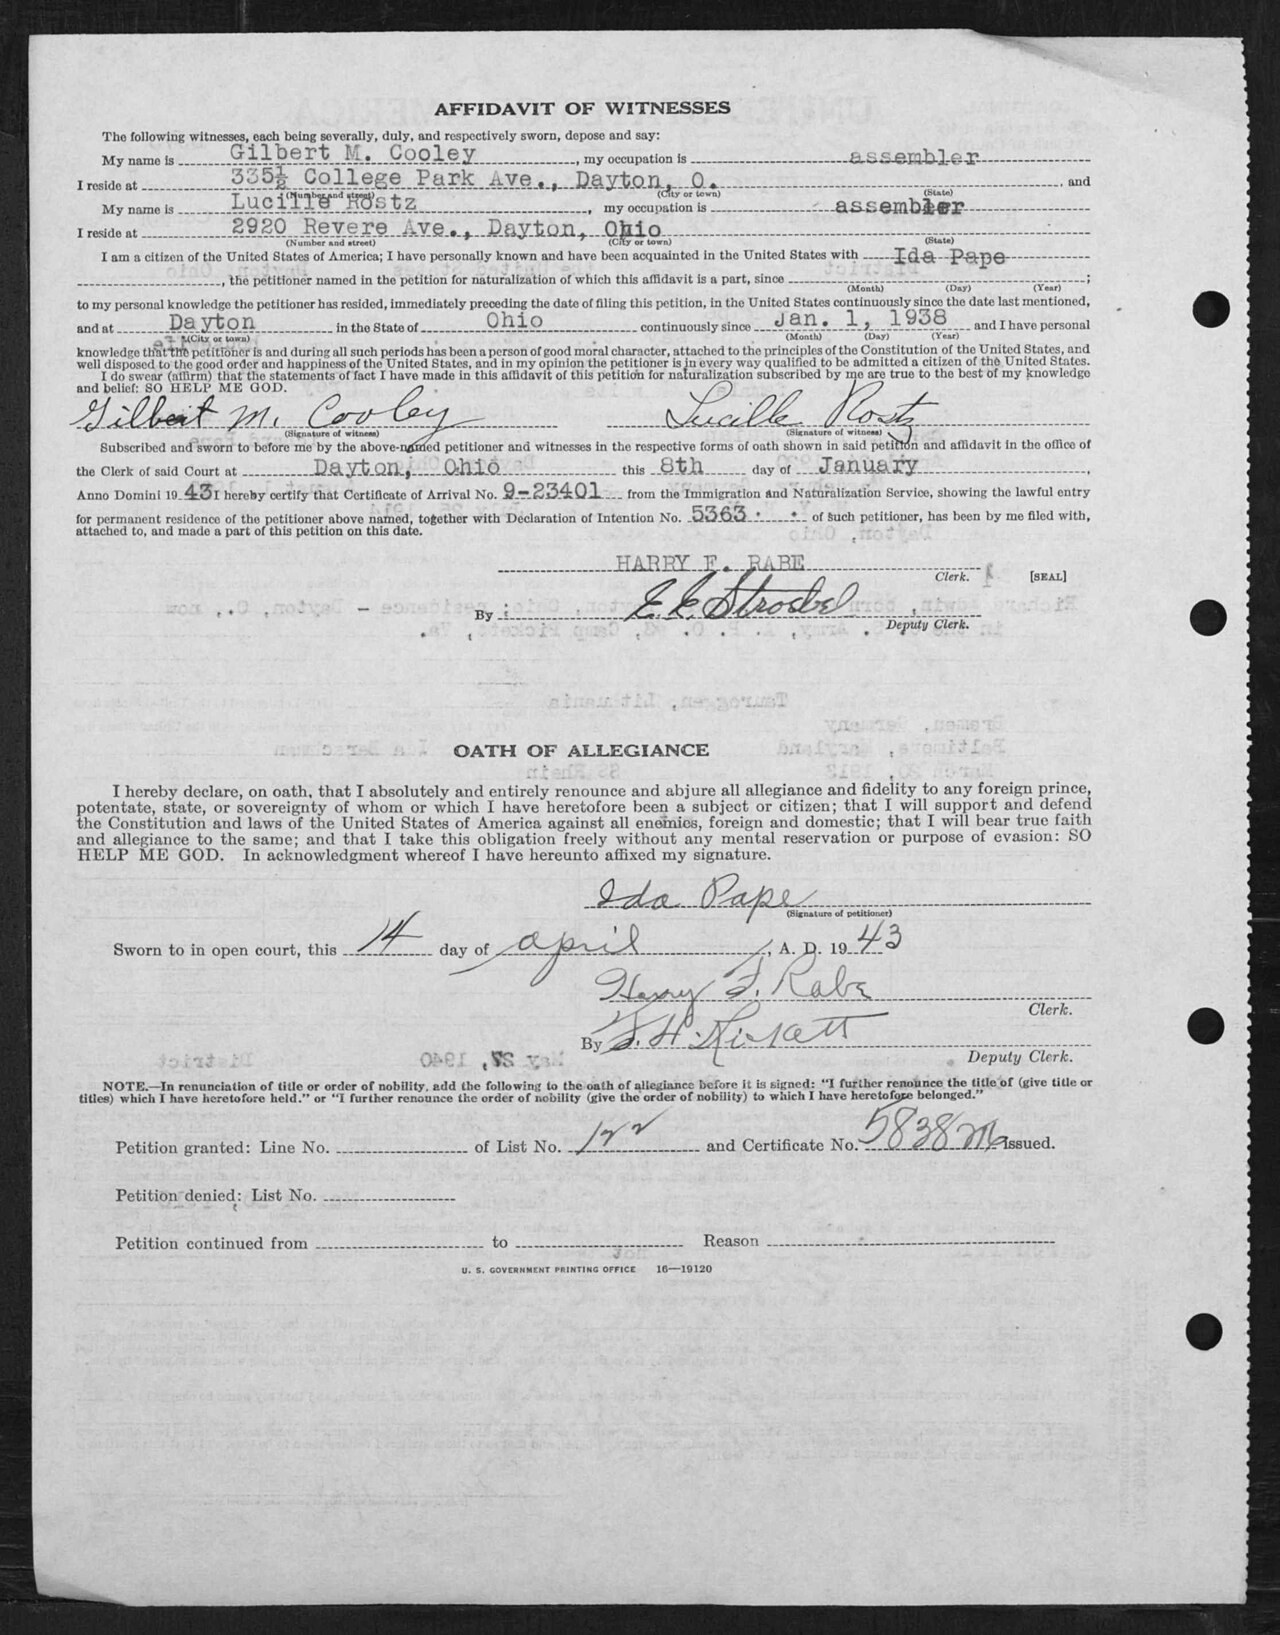 AFFIDAVIT OF WITNESSES
The following witnesses, each being severally, duly, and respectively sworn, depose and say:
My name is Gilbert M. Cooley, my occupation is assembler
I reside at 335½ College Park Ave., Dayton, O., and
(Number and street) (City or town) (State)
My name is Lucille Rostz, my occupation is assembler
I reside at 2920 Revere Ave., Dayton, Ohio
(Number and street) (City or town) (State)
I am a citizen of the United States of America; I have personally known and have been acquainted in the United States with Ida Pape
, the petitioner named in the petition for naturalization of which this affidavit is a part, since ;
(Month) (Day) (Year)
to my personal knowledge the petitioner has resided, immediately preceding the date of filing this petition, in the United States continuously since the date last mentioned,
and at Dayton in the State of Ohio continuously since Jan. 1, 1938 and I have personal
(City or town) (Month) (Day) (Year)
knowledge that the petitioner is and during all such periods has been a person of good moral character, attached to the principles of the Constitution of the United States, and
well disposed to the good order and happiness of the United States, and in my opinion the petitioner is in every way qualified to be admitted a citizen of the United States.
I do swear (affirm) that the statements of fact I have made in this affidavit of this petition for naturalization subscribed by me are true to the best of my knowledge
and belief: SO HELP ME GOD.
Gilbert M. Cooley Lucille Rostz
(Signature of witness) (Signature of witness)
Subscribed and sworn to before me by the above-named petitioner and witnesses in the respective forms of oath shown in said petition and affidavit in the office of
the Clerk of said Court at Dayton, Ohio this 8th day of January,
Anno Domini 1943 I hereby certify that Certificate of Arrival No. 9-23401 from the Immigration and Naturalization Service, showing the lawful entry
for permanent residence of the petitioner above named, together with Declaration of Intention No. 5363 of such petitioner, has been by me filed with,
attached to, and made a part of this petition on this date.
HARRY F. RABE
Clerk. [SEAL]
By E. E. Stroebel
Deputy Clerk.
OATH OF ALLEGIANCE
I hereby declare, on oath, that I absolutely and entirely renounce and abjure all allegiance and fidelity to any foreign prince,
potentate, state, or sovereignty of whom or which I have heretofore been a subject or citizen; that I will support and defend
the Constitution and laws of the United States of America against all enemies, foreign and domestic; that I will bear true faith
and allegiance to the same; and that I take this obligation freely without any mental reservation or purpose of evasion: SO
HELP ME GOD. In acknowledgment whereof I have hereunto affixed my signature.
Ida Pape
(Signature of petitioner)
Sworn to in open court, this 14 day of april, A. D. 1943
Harry F. Rabe
Clerk.
By
Deputy Clerk.
NOTE.—In renunciation of title or order of nobility, add the following to the oath of allegiance before it is signed: "I further renounce the title of (give title or
titles) which I have heretofore held." or "I further renounce the order of nobility (give the order of nobility) to which I have heretofore belonged."
Petition granted: Line No. of List No. 122 and Certificate No. issued.
Petition denied: List No.
Petition continued from to Reason
U. S. GOVERNMENT PRINTING OFFICE 16—19120